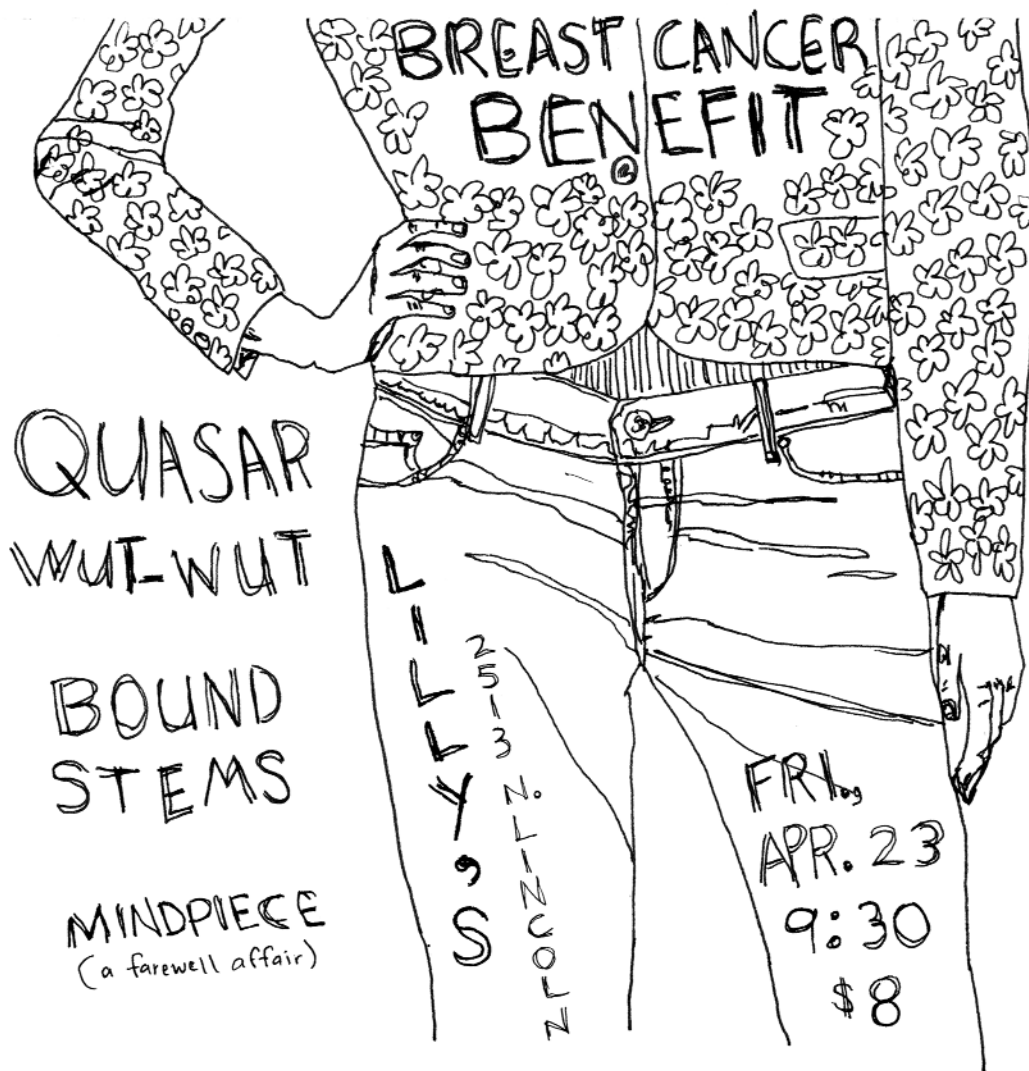 BREAST CANCER
BENEFIT
QUASAR
WUT-WUT
BOUND
STEMS
MINDPIECE
(a farewell affair)
LILLY'S
2513 N. LINCOLN
FRI.,
APR. 23
9:30
$8